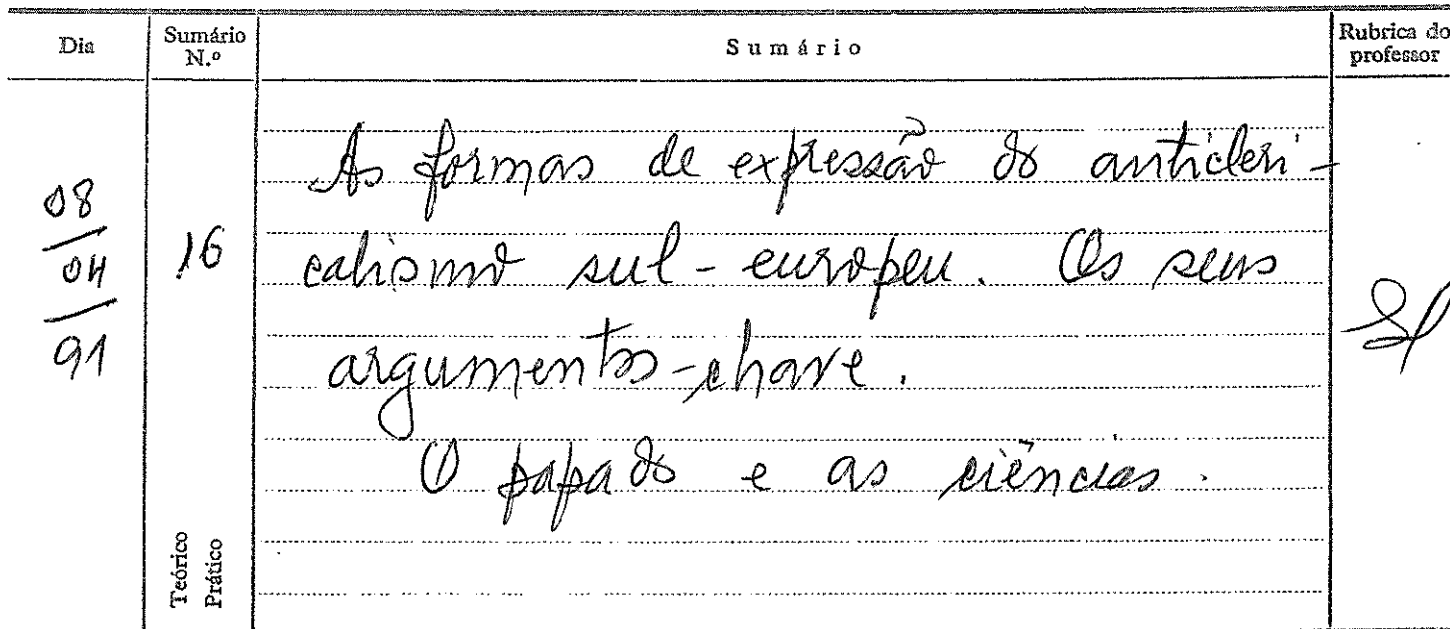 Dia
Sumário
N.º
Sumário
Rubrica do
professor
08
04
91
16
As formas de expressão do anticleri-
calismo sul-europeu. Os seus
argumentos-chave.
O papado e as ciências.
Teórico
Prático